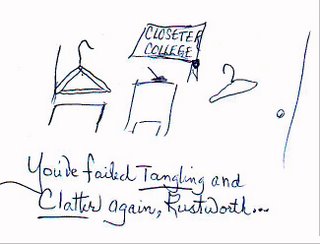 CLOSETER
COLLEGE
You've failed Tangling and
Clatter again, Rustworth...